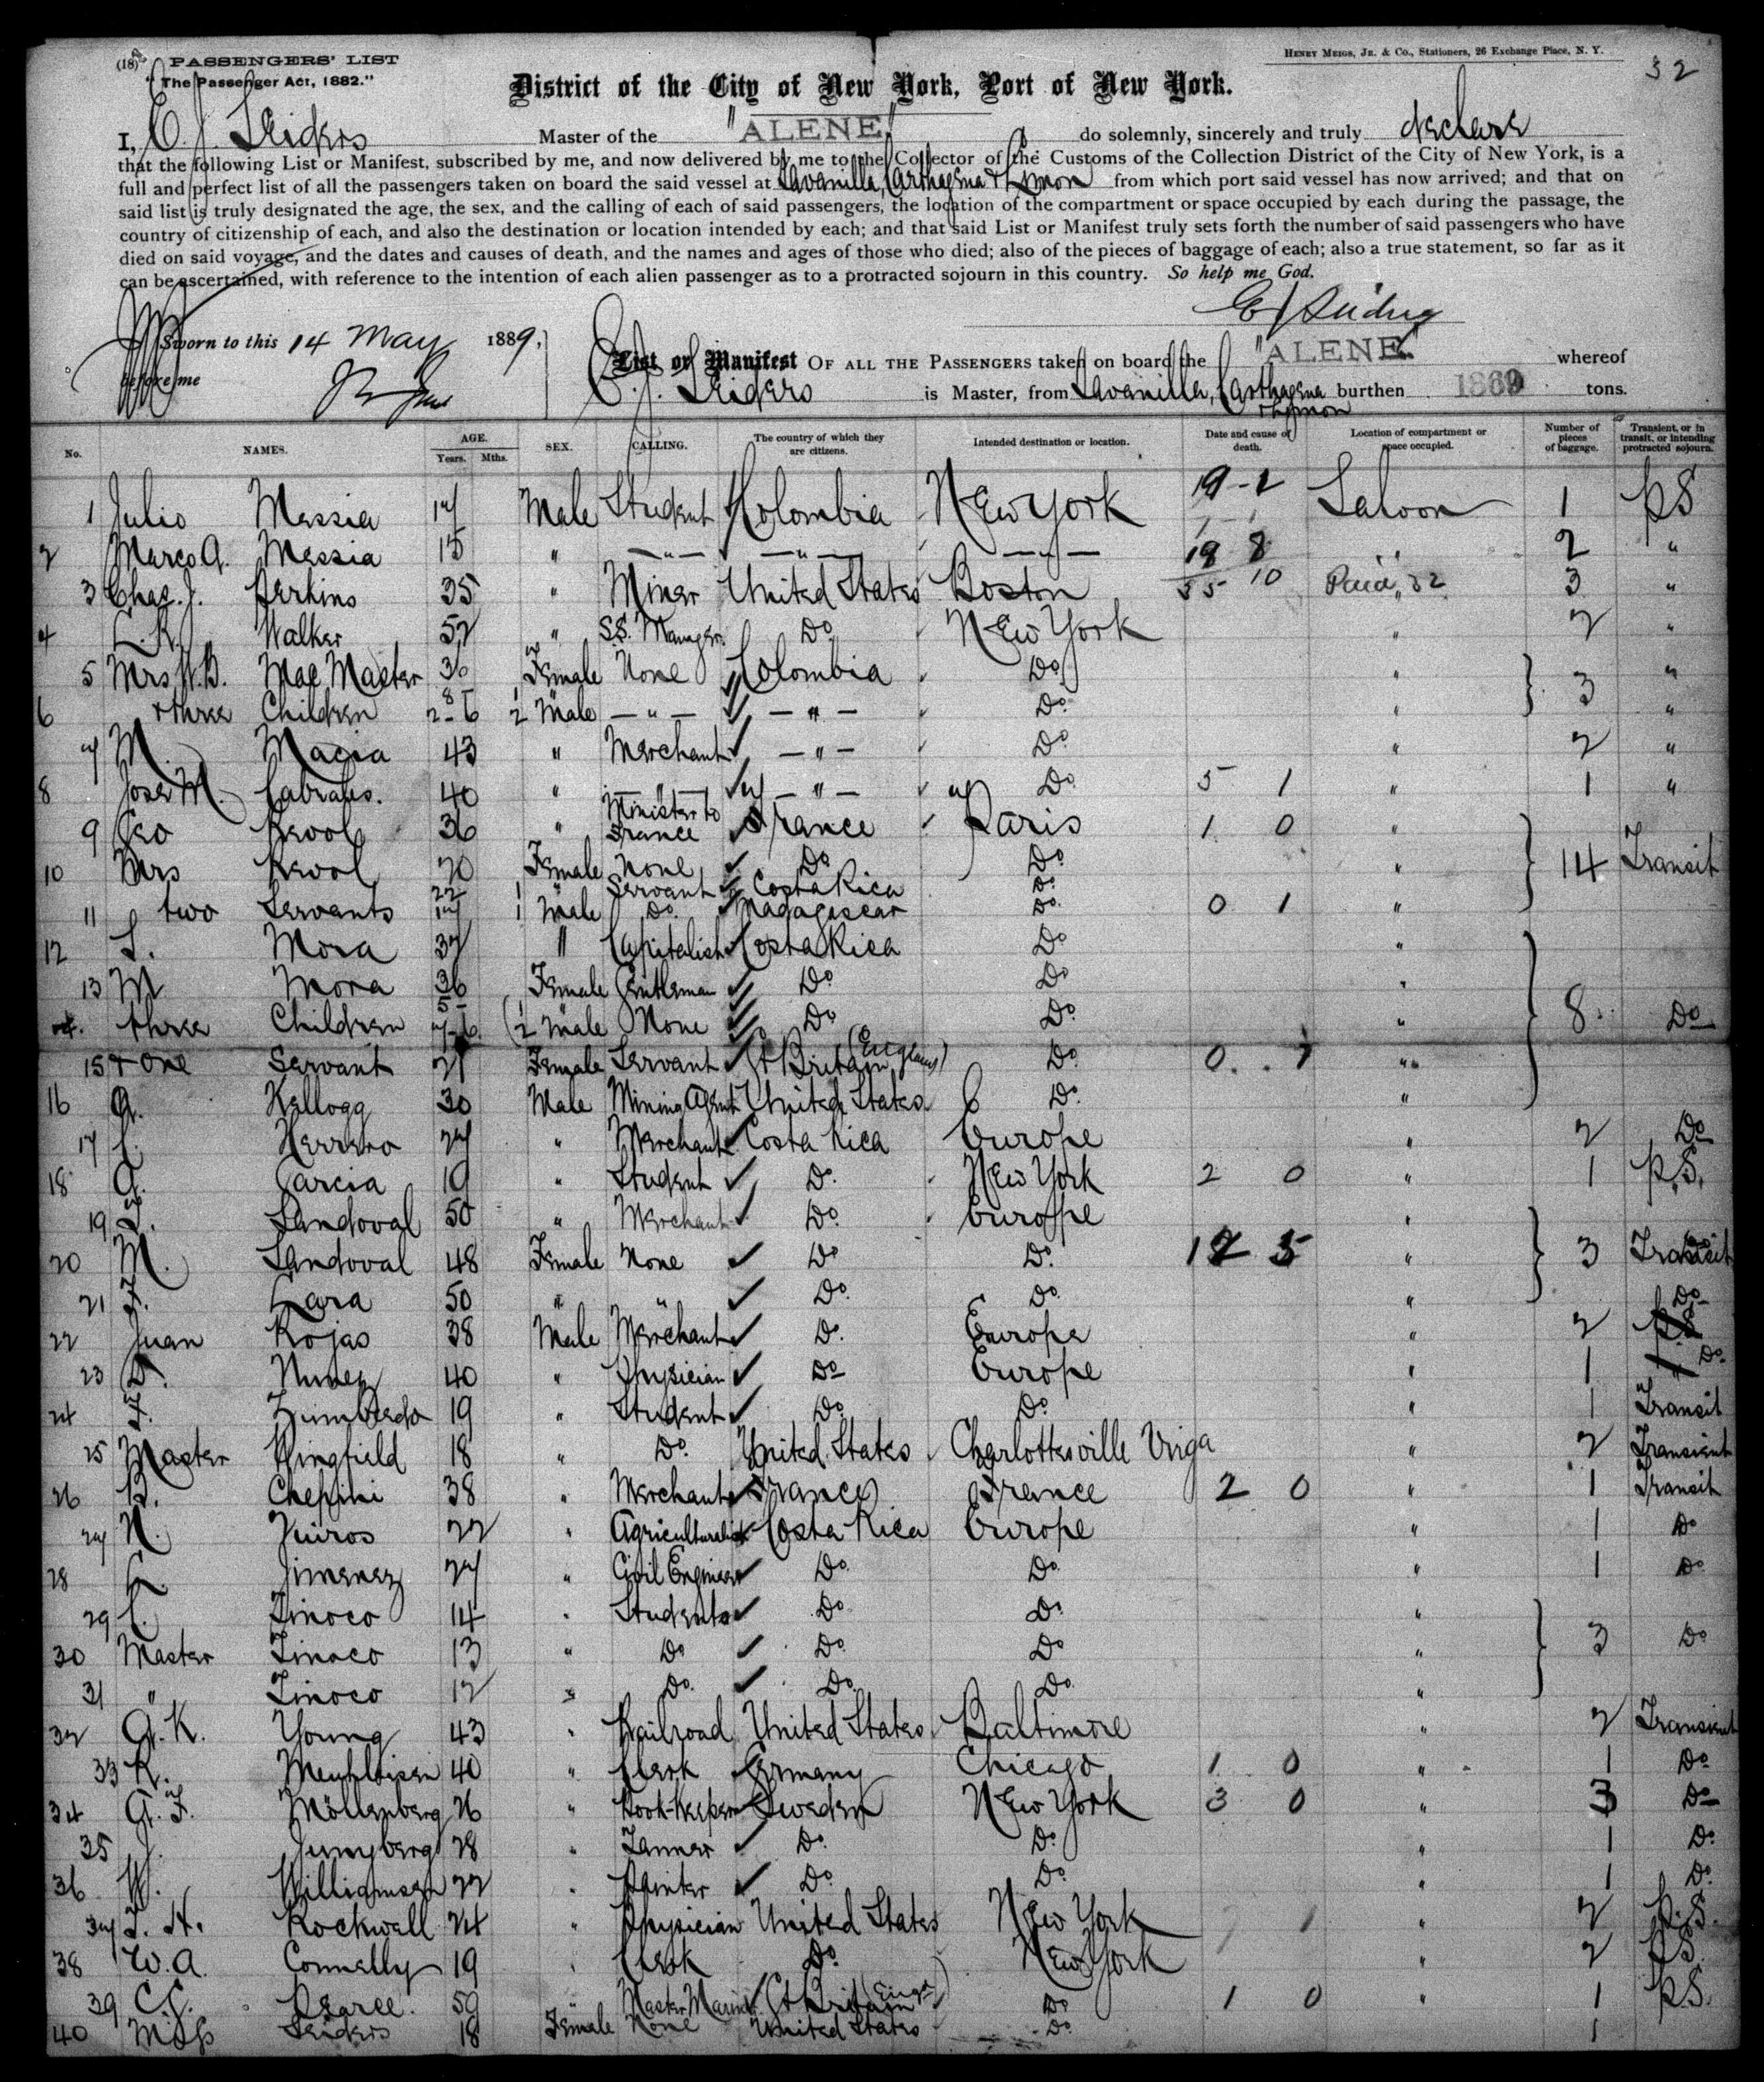 (18) PASSENGERS' LIST
HENRY MEIGS, JR. & CO., Stationers, 26 Exchange Place, N. Y.
32
"The Passenger Act, 1882."
District of the City of New York, Port of New York.
I, E. J. Seiders Master of the "ALENE" do solemnly, sincerely and truly declare
that the following List or Manifest, subscribed by me, and now delivered by me to the Collector of the Customs of the Collection District of the City of New York, is a
full and perfect list of all the passengers taken on board the said vessel at Savanilla, Carthagena & Limon from which port said vessel has now arrived; and that on
said list is truly designated the age, the sex, and the calling of each of said passengers, the location of the compartment or space occupied by each during the passage, the
country of citizenship of each, and also the destination or location intended by each; and that said List or Manifest truly sets forth the number of said passengers who have
died on said voyage, and the dates and causes of death, and the names and ages of those who died; also of the pieces of baggage of each; also a true statement, so far as it
can be ascertained, with reference to the intention of each alien passenger as to a protracted sojourn in this country. So help me God.
Sworn to this 14 May 1889,
before me
List or Manifest OF ALL THE PASSENGERS taken on board the "ALENE" whereof
E. J. Seiders is Master, from Savanilla, Carthagena & Limon burthen 1869 tons.
No. NAMES. AGE. Years. Mths. SEX. CALLING. The country of which they are citizens. Intended destination or location. Date and cause of death. Location of compartment or space occupied. Number of pieces of baggage. Transient, or in transit, or intending protracted sojourn.
1 Julio Messia 17 Male Student Colombia New York 19 - 2 Saloon 1 PS
2 Marco A. Messia 15 " — " — — " — — " — 19 8 " 2 "
3 Chas. J. Perkins 35 " Miner United States Boston 35 10 Paid 32 3 "
4 L. K. Walker 52 " S.S. Manager Do New York " 2 "
5 Mrs W. B. Mac Master 36 Female None Colombia Do " 3 "
6 + three Children 8 2-6 1 2 Male — " — — " — Do " "
7 M. Macia 43 " Merchant — " — Do " 2 "
8 Jose M. Cabrales. 40 " — " — — " — Do 5 1 " 1 "
9 Geo Revol 36 " Minister to France France Paris 1 0 "
10 Mrs Revol 20 Female None Do Do " 14 Transit
11 two Servants 22 17 1 " 1 Male Servant Do. Costa Rica Madagascar Do. Do. 0 1 "
12 S. Mora 37 " Capitalist Costa Rica Do "
13 M Mora 36 Female Gentleman Do Do "
14. three Children 5 7-6 1 " 2 Male None Do Do " 8 Do
15 + One Servant 21 Female Servant Gt Britain (England) Do 0. 1 "
16 A. Kellogg 30 Male Mining Agent United States Do. "
17 C. Herrero 27 " Merchant Costa Rica Europe " 2 Do
18 A. Garcia 19 " Student Do. New York 2 0 " 1 P.S.
19 Sandoval 50 " Merchant Do. Europe "
20 M. Sandoval 48 Female None Do Do. 12 5 " 3 Transit
21 F. Lara 50 " " Do. Do. " Do
22 Juan Rojas 38 Male Merchant Do. Europe " 2
23 D. Nunez 40 " Physician Do Europe " 1 Do
24 F. 19 " Student Do. Do. " 1 Transit
25 Master Wingfield 18 " Do. United States Charlottesville Virga " 2 Transient
26 B. Cheppini 38 " Merchant France France 2 0 " 1 Transit
27 N. Quiros 22 " Agriculturalist Costa Rica Europe " 1 Do
28 Jimenez 27 " Civil Engineer Do. Do. " 1 Do
29 C. Tinoco 14 " Students Do. Do. "
30 Master Tinoco 13 " Do Do. Do " 3 Do
31 " Tinoco 12 " Do. Do. Do. "
32 A. K. Young 43 " Railroad United States Baltimore " 2 Transient
33 R. 40 " Clerk Germany Chicago 1 0 " 1 Do
34 A. F. Möllenberg 26 " Book-Keeper Sweden New York 3 0 " 3 Do
35 J. 28 " Tanner Do. Do. " 1 Do.
36 W. Williamsen 22 " Painter Do. Do. " 1 Do.
37 T. H. Rockwell 24 " Physician United States New York 1 " 2 P.S.
38 W. A. Connelly 19 " Clerk Do. New York " 2 P.S.
39 C. J. Pearce. 59 " Master Mariner Gt Britain Do 1 0 " 1 P.S.
40 Miss Seiders 18 Female None United States Do. 1